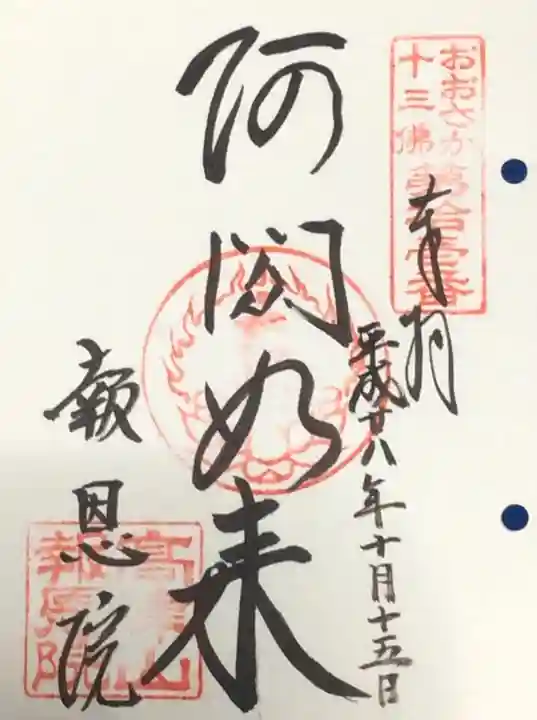 おおさか
十三佛
第拾壹番
奉拝
平成廿八年十月十五日
阿閦如来
報恩院
高津山
報恩院